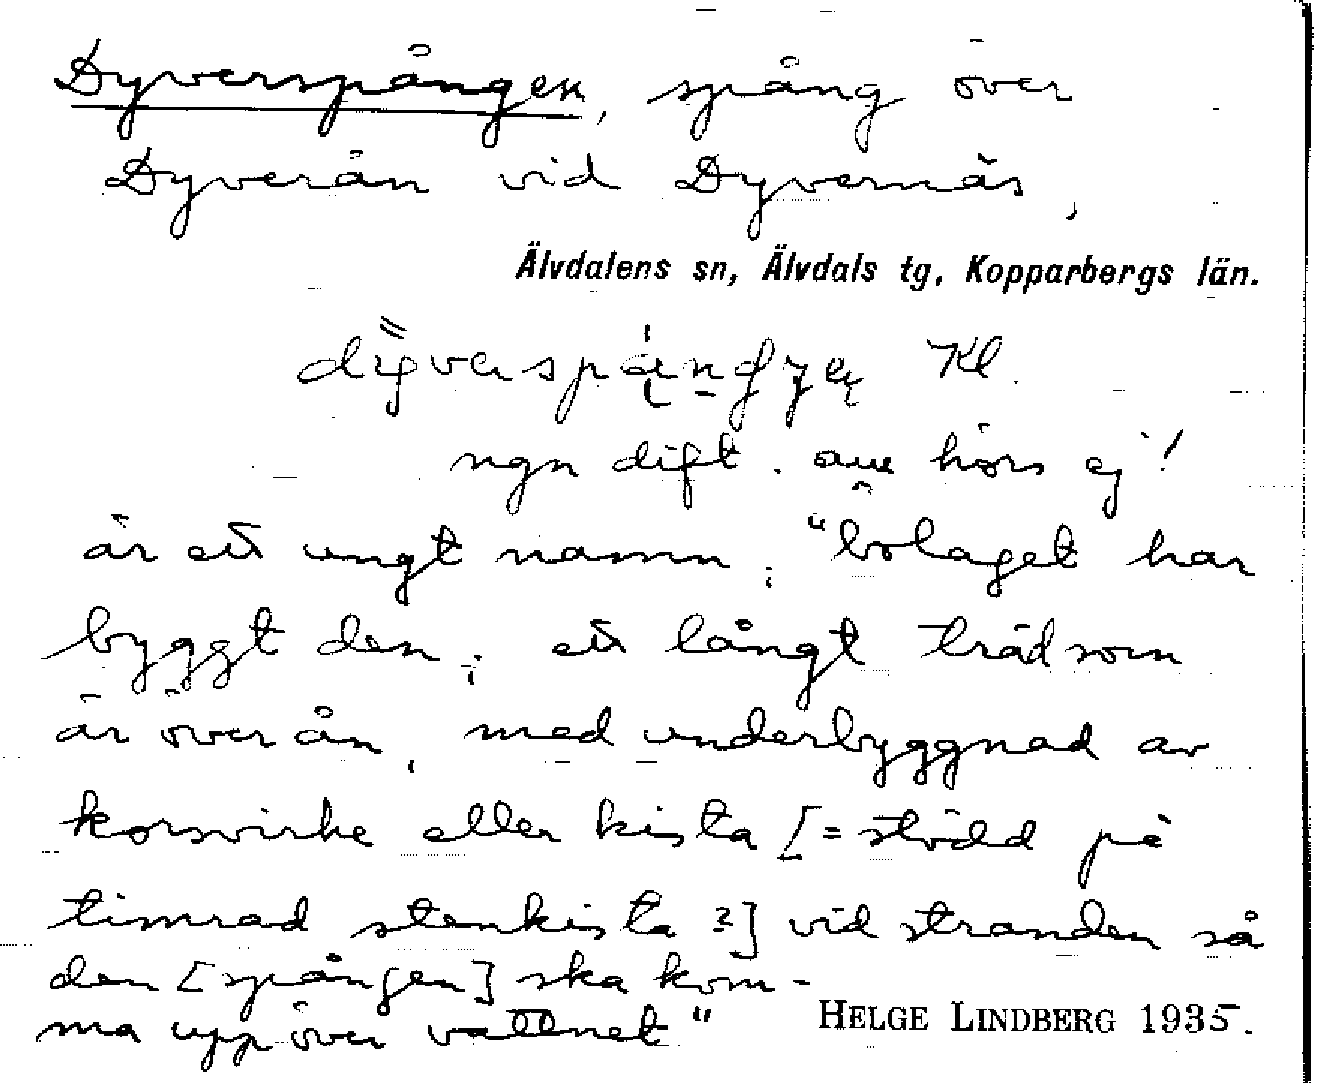 Dyverspången, spång över
Dyverån vid Dyvernäs,
Älvdalens sn, Älvdals tg, Kopparbergs län.
Kl
ngn dift. au hörs ej!
är ett ungt namn; "bolaget har
byggt den; ett långt träd som
är över ån, med underbyggnad av
korsvirke eller kista [= stödd på
timrad stenkista?] vid stranden så
den [spången] ska kom-
ma upp över vattnet"
HELGE LINDBERG 1935.